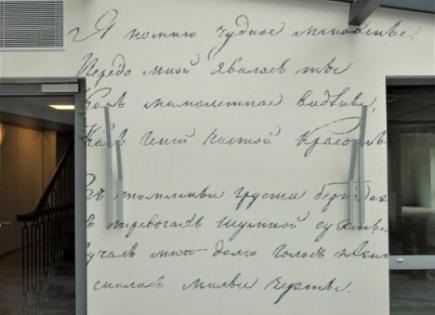 Я помню чудное мгновенье,
Передо мной явилась ты
Какъ мимолетное видѣнье,
Какъ геній чистой красоты
Въ томленьи грусти безнадеж
въ тревогахъ шумной суеты
учалъ мнѣ долго голосъ нѣжн
снились милыя черты.